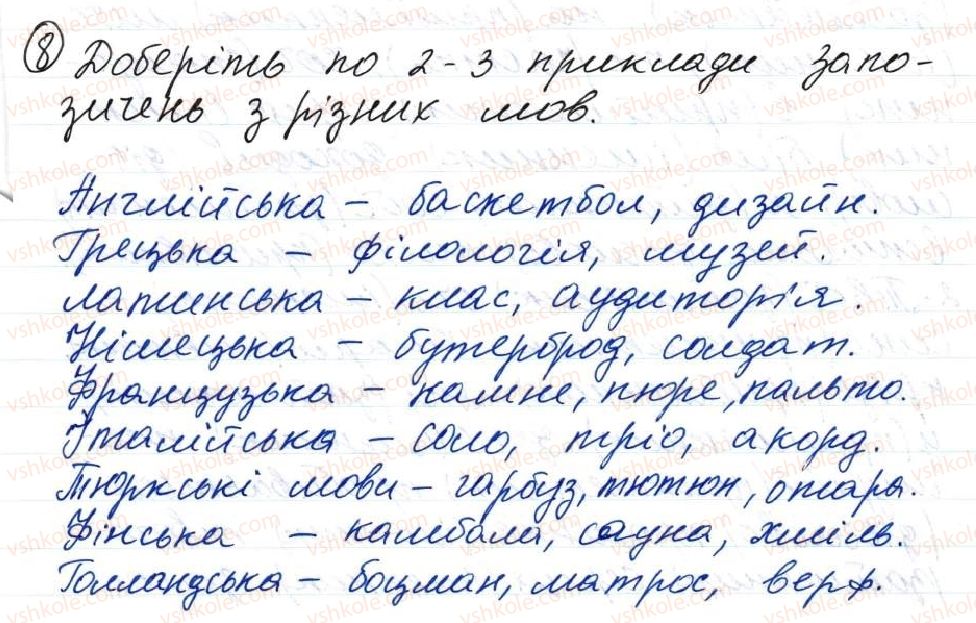 8 Доберіть по 2-3 приклади запо-
зичень з різних мов.
Англійська – баскетбол, дизайн.
Грецька – філологія, музей.
Латинська – клас, аудиторія.
Німецька – бутерброд, солдат.
Французька – кашне, пюре, пальто.
Італійська – соло, тріо, акорд.
Тюркські мови – гарбуз, тютюн, отара.
Фінська – камбала, сауна, хміль.
Голландська – боцман, матрос, верф.